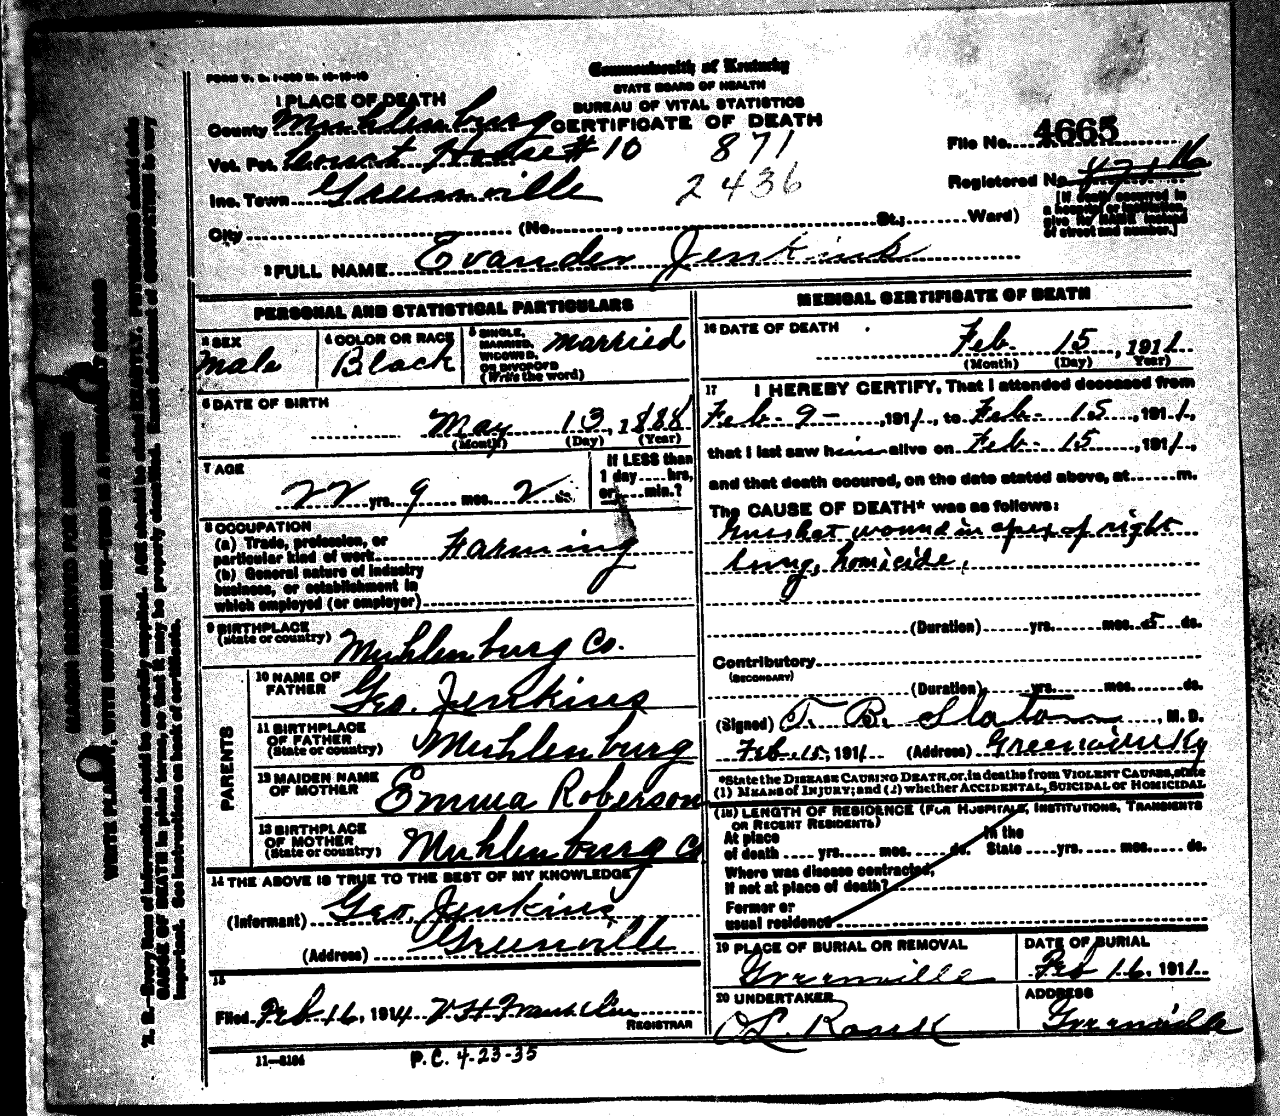 FORM V. S. 1-
Commonwealth of Kentucky
STATE BOARD OF HEALTH
BUREAU OF VITAL STATISTICS
CERTIFICATE OF DEATH
1 PLACE OF DEATH
County Muhlenburg
Vot. Pct. Court House # 10 871
Inc. Town Greenville 2436
City (No. , St.; Ward)
File No. 4665
Registered No.
[If death occurred in
a hospital or institution,
give its NAME instead
of street and number.]
2 FULL NAME Evander Jenkins
PERSONAL AND STATISTICAL PARTICULARS
3 SEX
Male
4 COLOR OR RACE
Black
5 SINGLE,
MARRIED,
WIDOWED,
OR DIVORCED
(Write the word)
Married
6 DATE OF BIRTH
May 13, 1888
(Month) (Day) (Year)
7 AGE
22 yrs. 9 mos. 2 ds.
If LESS than
1 day hrs.
or min.?
8 OCCUPATION
(a) Trade, profession, or
particular kind of work Farming
(b) General nature of industry
business, or establishment in
which employed (or employer)
9 BIRTHPLACE
(state or country) Muhlenburg Co.
PARENTS
10 NAME OF
FATHER Geo. Jenkins
11 BIRTHPLACE
OF FATHER
(State or country) Muhlenburg
12 MAIDEN NAME
OF MOTHER Emma Roberson
13 BIRTHPLACE
OF MOTHER
(State or country) Muhlenburg Co
14 THE ABOVE IS TRUE TO THE BEST OF MY KNOWLEDGE
(Informant) Geo. Jenkins
(Address) Greenville
15
Filed Feb 16, 1914 V H Franklin
REGISTRAR
11—8184
P.C. 4-23-35
MEDICAL CERTIFICATE OF DEATH
16 DATE OF DEATH
Feb. 15, 1911
(Month) (Day) (Year)
17 I HEREBY CERTIFY, That I attended deceased from
Feb - 9 - , 1911, to Feb - 15 , 1911,
that I last saw him alive on Feb - 15 , 1911,
and that death occured, on the date stated above, at m.
The CAUSE OF DEATH* was as follows:
Gunshot wound in apex of right
lung, homicide,
(Duration) yrs. mos. 5 ds.
Contributory
(SECONDARY)
(Duration) yrs. mos. ds.
(Signed) T. B. Slaton , M. D.
Feb 15, 1911 (Address)
*State the DISEASE CAUSING DEATH, or, in deaths from VIOLENT CAUSES, state
(1) MEANS OF INJURY; and (2) whether ACCIDENTAL, SUICIDAL OR HOMICIDAL
(18) LENGTH OF RESIDENCE (FOR HOSPITALS, INSTITUTIONS, TRANSIENTS
OR RECENT RESIDENTS)
At place
of death yrs. mos. ds.
In the
State yrs. mos. ds.
Where was disease contracted,
if not at place of death?
Former or
usual residence
19 PLACE OF BURIAL OR REMOVAL
Greenville
DATE OF BURIAL
Feb 16, 1911
20 UNDERTAKER
ADDRESS
Greenville
MARGIN RESERVED FOR BINDING
WRITE PLAINLY, WITH UNFADING INK—THIS IS A PERMANENT RECORD
N. B.—Every item of information should be carefully supplied. AGE should be stated EXACTLY. PHYSICIANS should state
CAUSE OF DEATH in plain terms, so that it may be properly classified. Exact statement of OCCUPATION is very
important. See instructions on back of certificate.